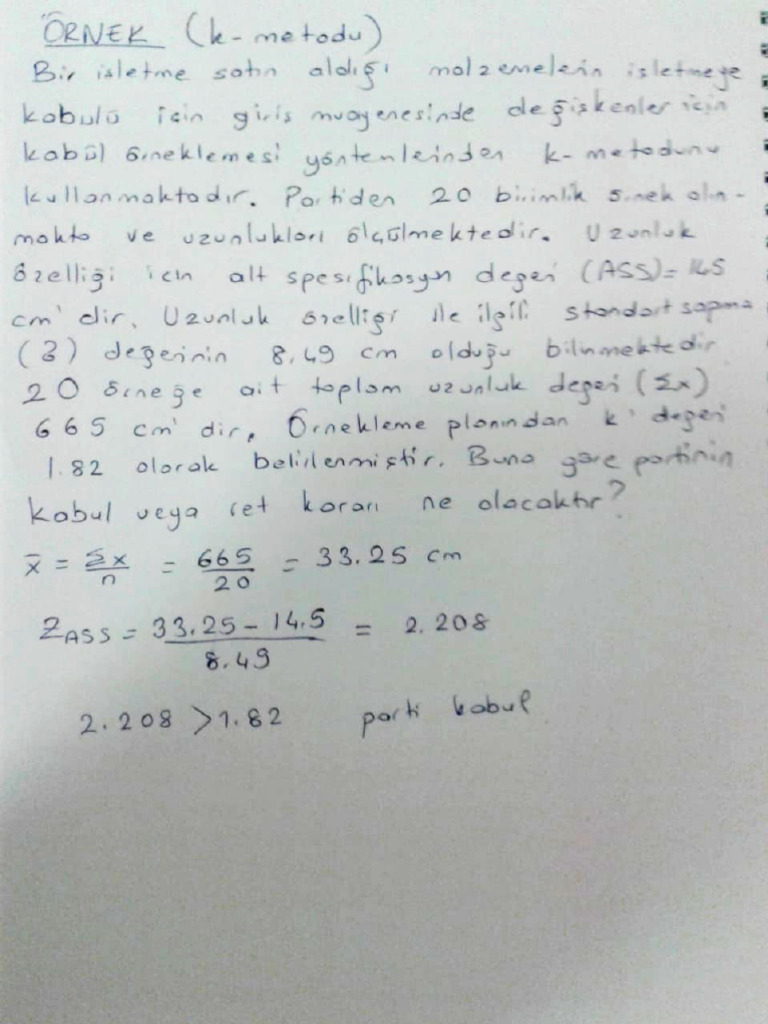 ÖRNEK (k-metodu)
Bir işletme satın aldığı malzemelerin işletmeye
kabulü için giriş muayenesinde değişkenler için
kabül örneklemesi yöntemlerinden k-metodunu
kullanmaktadır. Partiden 20 birimlik örnek alın-
makta ve uzunlukları ölçülmektedir. Uzunluk
özelliği için alt spesifikasyon değeri (ASS)= 14.5
cm'dir. Uzunluk özelliği ile ilgili standart sapma
değerinin 8,49 cm olduğu bilinmektedir
20 örneğe ait toplam uzunluk değeri (Σx)
665 cm'dir. Örnekleme planından k' değeri
1.82 olarak belirlenmiştir. Buna göre partinin
kabul veya ret kararı ne olacaktır?
x̄ = Σx/n = 665/20 = 33.25 cm
ZASS = 33.25 - 14.5 / 8.49 = 2.208
2.208 > 1.82 parti kabul